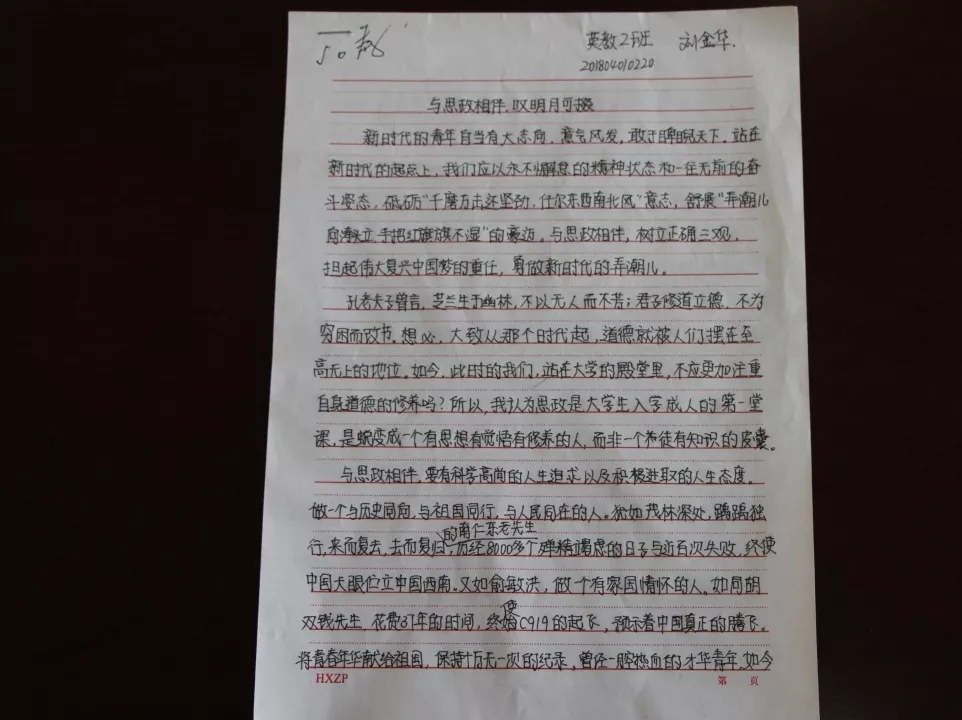 英教2班 刘金华.
201804010220
与思政相伴,叹明月可掇
新时代的青年自当有大志向,意气风发,敢于睥睨天下。站在
新时代的起点上,我们应以永不懈怠的精神状态和一往无前的奋
斗姿态,砥砺"千磨万击还坚劲,任尔东西南北风"意志,舒展"弄潮儿
向涛头立,手把红旗旗不湿"的豪迈。与思政相伴,树立正确三观,
担起伟大复兴中国梦的重任,勇做新时代的弄潮儿。
孔老夫子曾言,芝兰生于幽林,不以无人而不芳;君子修道立德,不为
穷困而改节。想必,大致从那个时代起,道德就被人们摆在至
高无上的地位。如今,此时的我们,站在大学的殿堂里,不应更加注重
自身道德的修养吗?所以,我认为思政是大学生入学成人的第一堂
课,是蜕变成一个有思想有觉悟有修养的人,而非一个徒有知识的皮囊。
与思政相伴,要有科学高尚的人生追求以及积极进取的人生态度。
做一个与历史同向,与祖国同行,与人民同在的人。犹如茂林深处,踽踽独
行,来而复去,去而复归的南仁东老先生,历经8000多个殚精竭虑的日子与近百次失败,终使
中国天眼伫立中国西南。又如俞敏洪,做个有家国情怀的人。如同胡
双钱先生,花费37年的时间,终使C919的起飞,预示着中国真正的腾飞。
将青春年华献给祖国,保持十万无一次的纪录,曾经一腔热血的才华青年,如今
HXZP 第 页